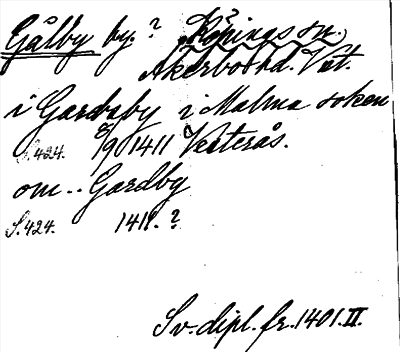 Gålby by. ? Köpings sn.,
Åkerbo hd. Vst.
i Gardaby i Malma soken
S. 424. 8/9 1411 Västerås.
om.. Gardby
S. 424. 1411. ?
Sv. dipl. fr. 1401. II.